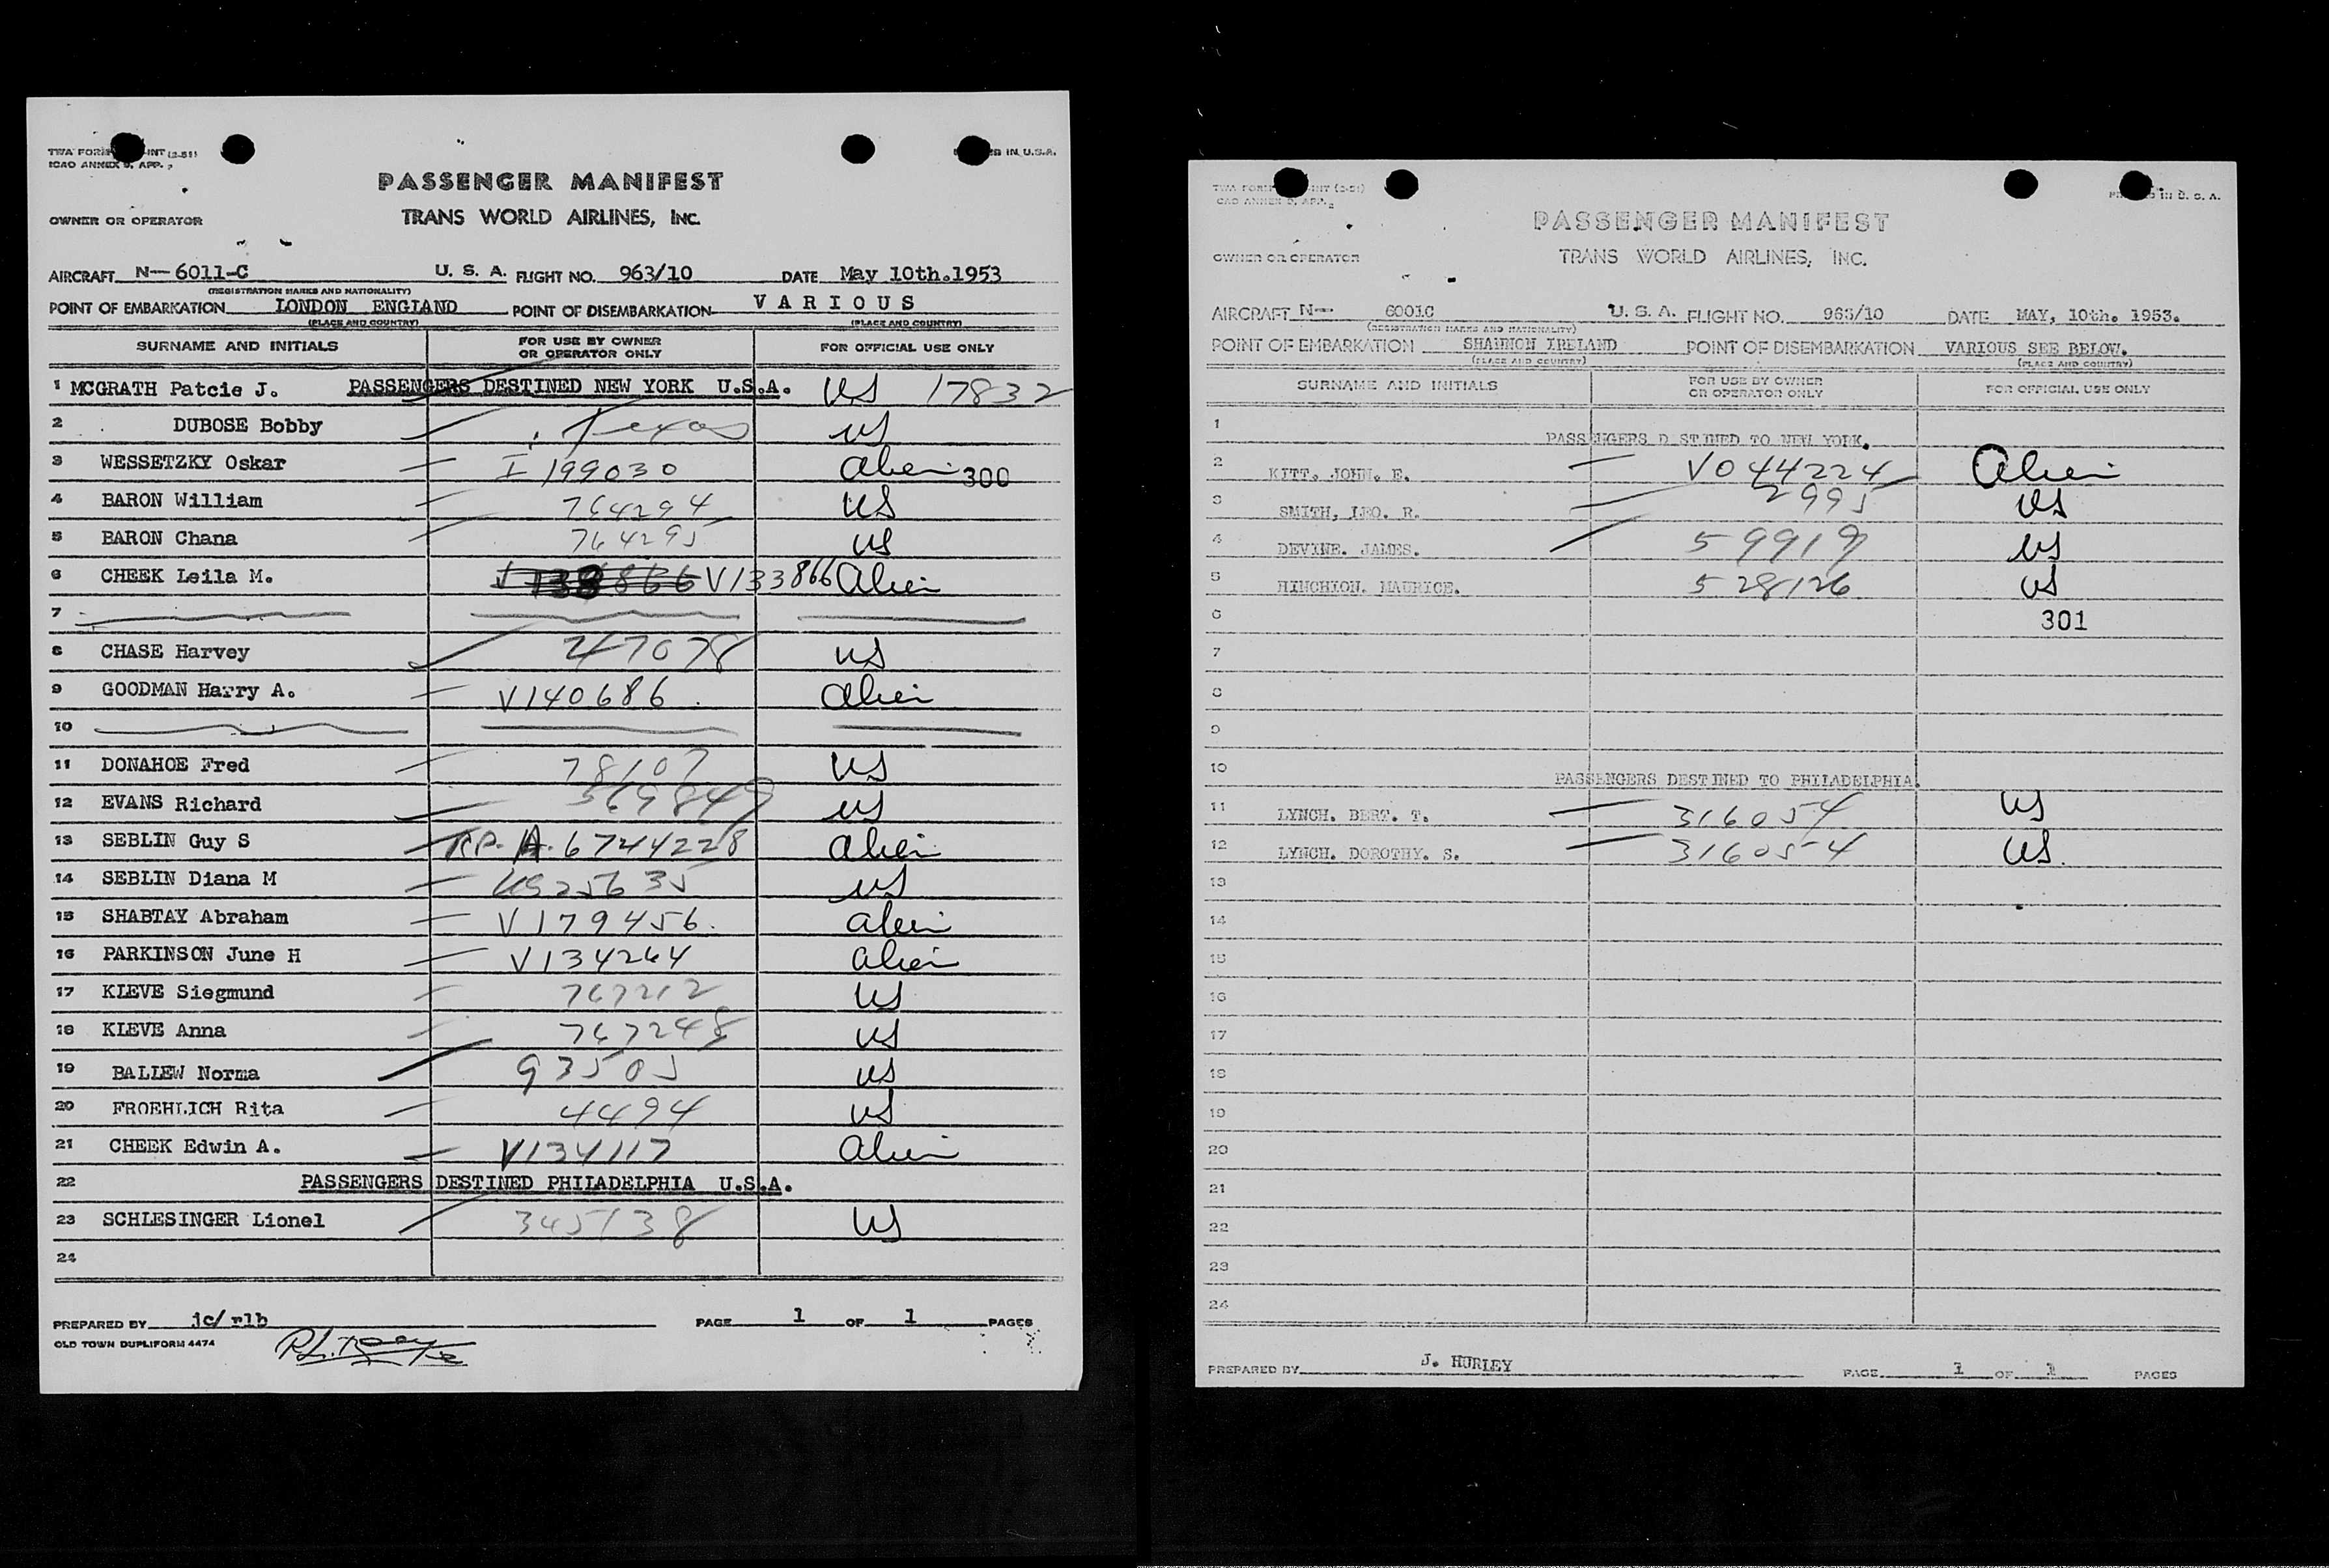 TWA FORM INT (2-51)
ICAO ANNEX 9, APP. 2
IN U.S.A.
PASSENGER MANIFEST
OWNER OR OPERATOR
TRANS WORLD AIRLINES, INC.
AIRCRAFT N-- 6011-C U. S. A. FLIGHT NO. 963/10 DATE May 10th.1953
(REGISTRATION MARKS AND NATIONALITY)
POINT OF EMBARKATION LONDON ENGLAND POINT OF DISEMBARKATION V A R I O U S
(PLACE AND COUNTRY) (PLACE AND COUNTRY)
SURNAME AND INITIALS FOR USE BY OWNER OR OPERATOR ONLY FOR OFFICIAL USE ONLY
1 MCGRATH Patcie J. PASSENGERS DESTINED NEW YORK U.S.A. US 17832
2 DUBOSE Bobby Texas US
3 WESSETZKY Oskar I 199030 alien 300
4 BARON William 764294 US
5 BARON Chana 764295 US
6 CHEEK Leila M. V133866 alien
7
8 CHASE Harvey 247078 US
9 GOODMAN Harry A. V140686 alien
10
11 DONAHOE Fred 78107 US
12 EVANS Richard 569849 US
13 SEBLIN Guy S R.P. A. 6744228 alien
14 SEBLIN Diana M US 25635 US
15 SHABTAY Abraham V179456. alien
16 PARKINSON June H V134264 alien
17 KLEVE Siegmund 767212 US
18 KLEVE Anna 767248 US
19 BALLEW Norma 93505 US
20 FROEHLICH Rita 4494 US
21 CHEEK Edwin A. V134117 alien
22 PASSENGERS DESTINED PHILADELPHIA U.S.A.
23 SCHLESINGER Lionel 345138 US
24
PREPARED BY jc/ rlb PAGE 1 OF 1 PAGES
OLD TOWN DUPLIFORM 4474
TWA FORM INT (2-51)
CAO ANNEX 9, APP. 2
IN U. S. A.
PASSENGER MANIFEST
OWNER OR OPERATOR
TRANS WORLD AIRLINES, INC.
AIRCRAFT N-- 6001C U. S. A. FLIGHT NO. 963/10 DATE MAY, 10th. 1953.
(REGISTRATION MARKS AND NATIONALITY)
POINT OF EMBARKATION SHANNON IRELAND POINT OF DISEMBARKATION VARIOUS SEE BELOW.
(PLACE AND COUNTRY) (PLACE AND COUNTRY)
SURNAME AND INITIALS FOR USE BY OWNER OR OPERATOR ONLY FOR OFFICIAL USE ONLY
1 PASSENGERS D STINED TO NEW YORK.
2 KITT. JOHN. E. V044224 alien
3 SMITH, LEO. R. 2995 US
4 DEVINE. JAMES. 59919 US
5 HINCHION. MAURICE. 528126 US
6 301
7
8
9
10 PASSENGERS DESTINED TO PHILADELPHIA.
11 LYNCH. BERT. T. 316054 US
12 LYNCH. DOROTHY. S. 316054 US.
13
14
15
16
17
18
19
20
21
22
23
24
PREPARED BY J. HURLEY PAGE 1 OF 1 PAGES